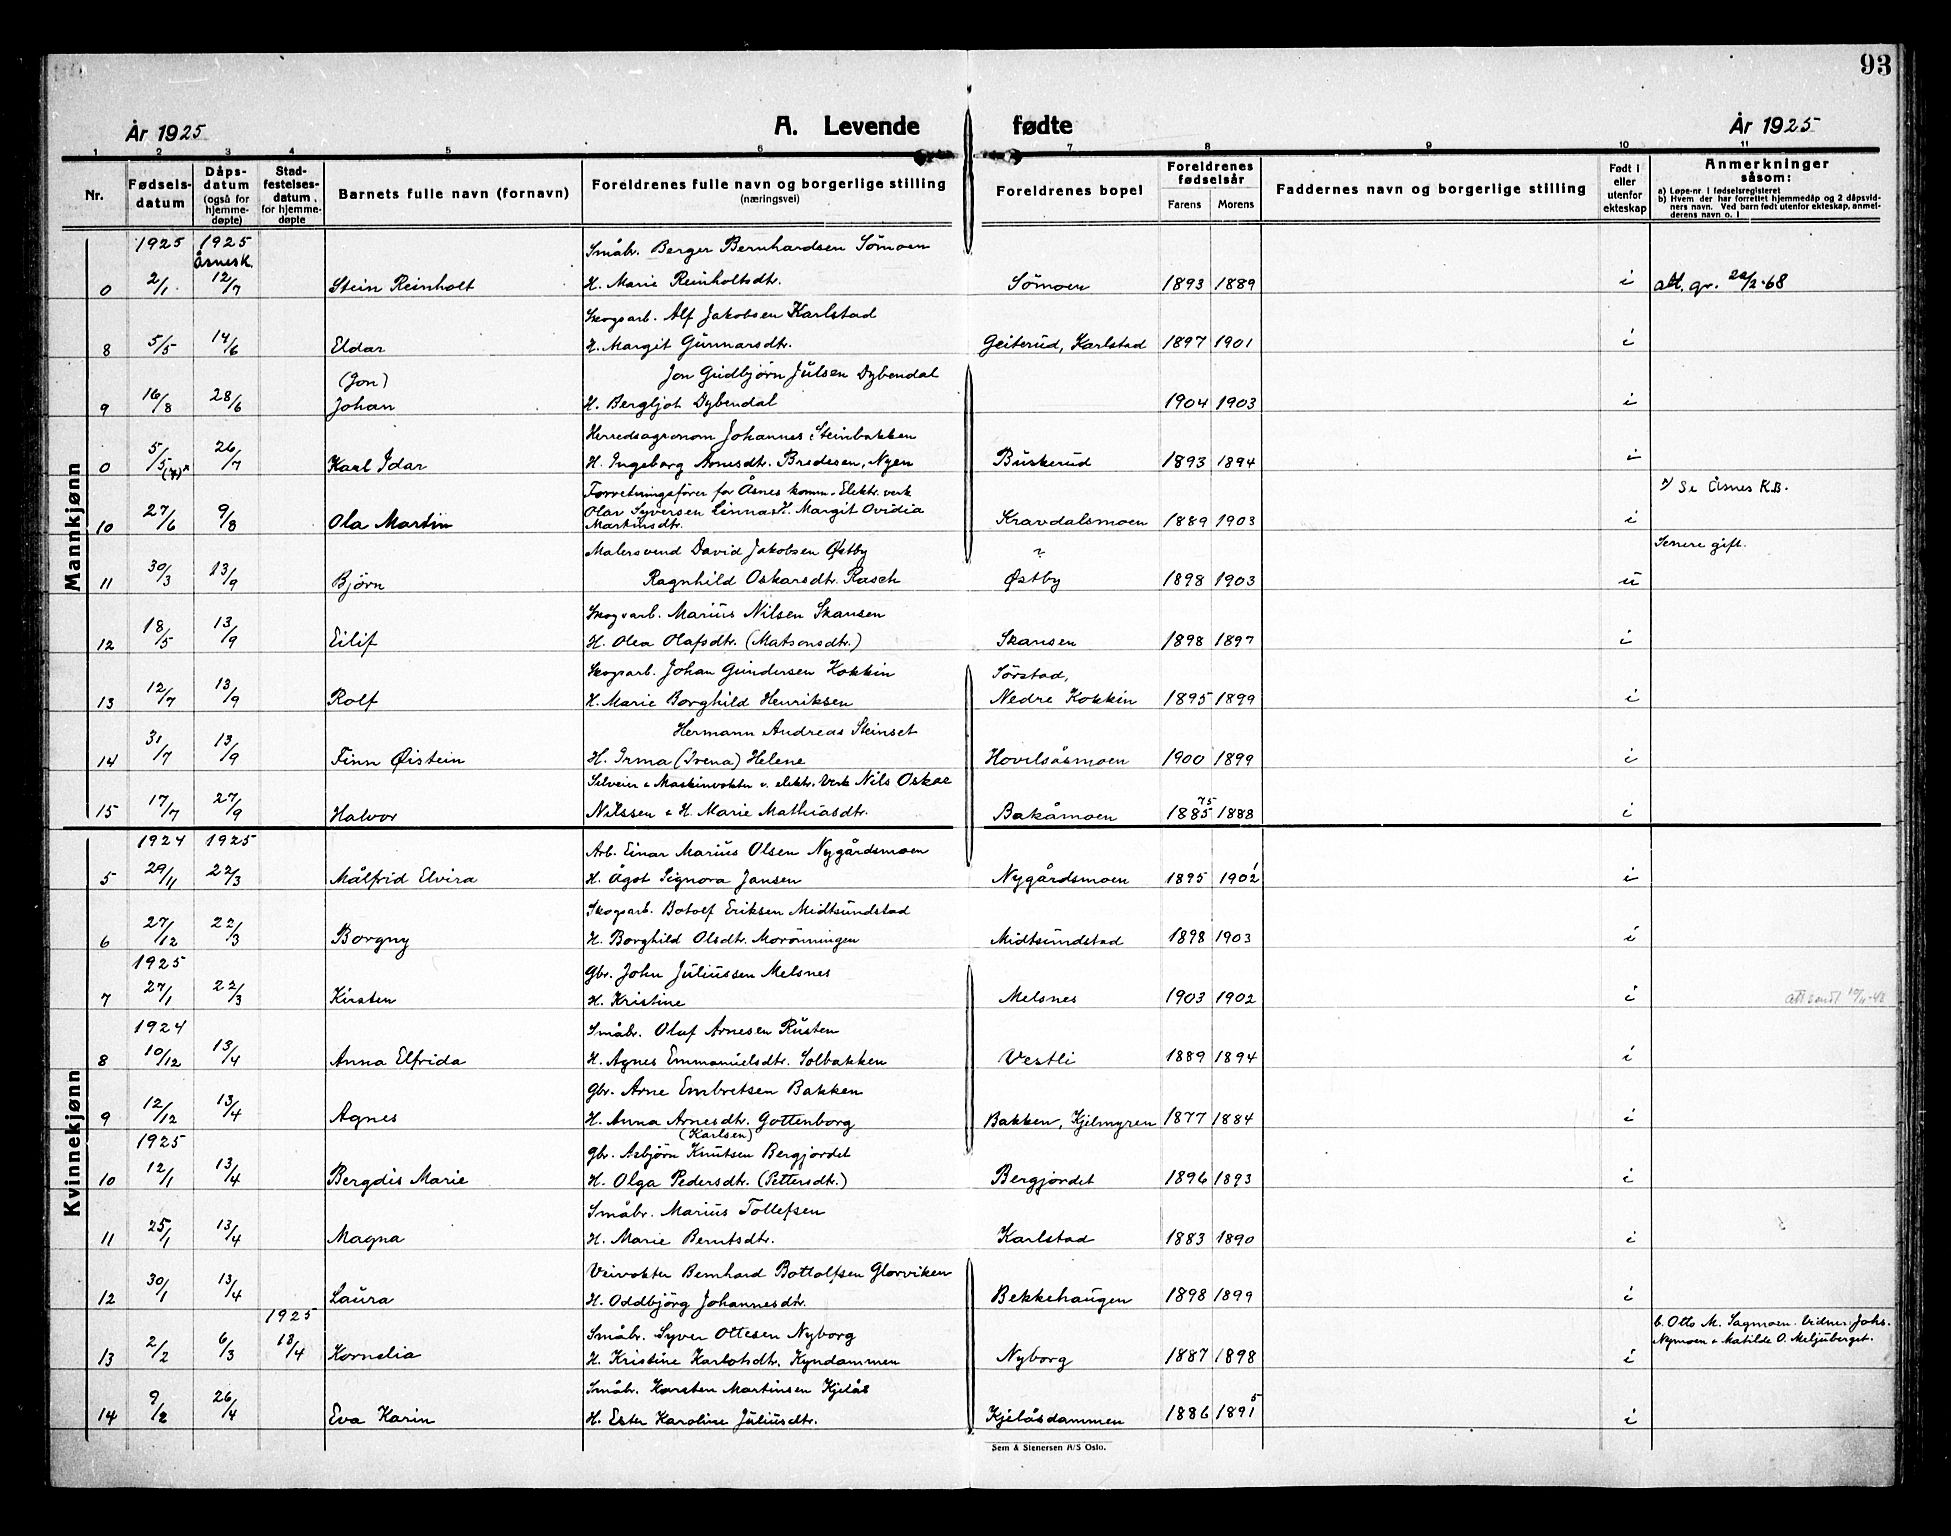 93
År 1925 A. Levende fødte År 1925
1 2 3 4 5 6 7 8 9 10 11
Nr. Fødsels-datum Dåps-datum (også for hjemme-døpte) Stad-festelses-datum for hjemme-døpte Barnets fulle navn (fornavn) Foreldrenes fulle navn og borgerlige stilling (næringsvei) Foreldrenes bopel Foreldrenes fødselsår Farens Morens Faddernes navn og borgerlige stilling Født i eller utenfor ekteskap Anmerkninger såsom:
a) Løpe-nr. i fødselsregisteret
b) Hvem der har forrettet hjemmedåp og 2 dåpsvidners navn. Ved barn født utenfor ekteskap, anmelderens navn o. l
Mannkjønn
1925 1925 Småbr. Berger Bernhardsen Sømoen
Åsnes K.
0 2/1 12/7 Stein Reinholt H. Marie Reinholtsdtr. Sømoen 1893 1889 i att. gr. 22/2-68
Skogsarb. Alf Jakobsen Karlstad
8 5/5 14/6 Eldar H. Margit Gunnarsdtr. Geiterud, Karlstad 1897 1901 i
(Jon) Jon Gudbjørn Julsen Dybendal
9 16/8 28/6 Johan H. Bergljot Dybendal 1904 1903 i
Herredsagronom Johannes Steinbakken
0 5/5 (7)x 26/7 Karl Idar H. Ingeborg Arnesdtr. Bredesen, Nyen Buskerud 1893 1894 i
Forretningsfører for Åsnes komm. Elektr. verk x/ Se Åsnes K.B.
10 27/6 9/8 Ola Martin Olav Syversen Linnas H. Margit Ovidia Kravdalsmoen 1889 1903 i
Martinsdtr.
Malersvend David Jakobsen Østby ? Senere gift.
11 30/3 13/9 Bjørn Ragnhild Oskarsdtr. Rasch Østby 1898 1903 u
Skogsarb. Marius Nilsen Skansen
12 18/5 13/9 Eilif H. Olea Olafsdtr. (Matsonsdtr.) Skansen 1898 1897 i
Skogsarb. Johan Gundersen Kokkin Sørstad,
13 12/7 13/9 Rolf H. Marie Borghild Henriksen Nedre Kokkin 1895 1899 i
Hermann Andreas Steinset
14 31/7 13/9 Finn Øistein H. Irma (Irena) Helene Hovilsåsmoen 1900 1899 i
Selveier & Maskinvokter v. elektr. Verk Nils Oskar
15 17/7 27/9 Halvor Nilssen & H. Marie Mathiasdtr. Bakåmoen 1885 75 1888 i
Kvinnekjønn
1924 1925 Arb. Einar Marius Olsen Nygårdsmoen
5 29/11 22/3 Målfrid Elvira H. Ågot Signora Jansen Nygårdsmoen 1895 1902 1 i
Skogsarb. Botolf Eriksen Midtsundstad
6 27/12 22/3 Borgny H. Borghild Olsdtr. Morønningen Midtsundstad 1898 1903 i
1925 Gbr. John Juliussen Melsnes
7 27/1 22/3 Kirsten H. Kristine Melsnes 1903 1902 i att sendt 10/11-48
1924 Småbr. Oluf Arnesen Rusten
8 10/12 13/4 Anna Elfrida H. Agnes Emmanuelsdtr. Solbakken Vestli 1889 1894 i
Gbr. Arne Embretsen Bakken
9 12/12 13/4 Agnes H. Anna Arnesdtr. Gottenborg Bakken, Kjelmyren 1877 1884 i
(Karlsen)
1925 Gbr. Asbjørn Knutsen Bergjordet
10 12/1 13/4 Bergdis Marie H. Olga Pedersdtr. (Pettersdtr.) Bergjordet 1896 1893 i
Småbr. Marius Tollefsen
11 25/1 13/4 Magna H. Marie Berntsdtr. Karlstad 1883 1890 i
Veivokter Bernhard Bottolfsen Glorviken
12 30/1 13/4 Laura H. Oddbjörg Johannesdtr. Bekkehaugen 1898 1899 i
1925 Småbr. Syver Ottesen Nyborg b. Otto M. Sagmoen. Vidner Johs.
13 2/2 6/3 13/4 Kornelia H. Kristine Karlotsdtr. Kyndammen Nyborg 1887 1898 i Nymoen & Matilde O. Meljuberget.
Småbr. Karsten Martinsen Kjelås
14 9/2 26/4 Eva Karin H. Ester Karoline Juliusdtr. Kjelåsdammen 1886 1891 5 i
Sem & Stenersen A/S Oslo.